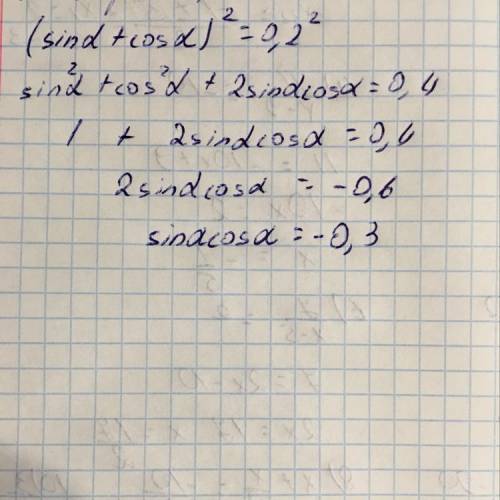 (sinα + cosα)² = 0,2²
sin²α + cos²α + 2sinαcosα = 0,4
1 + 2sinαcosα = 0,4
2sinαcosα = -0,6
sinαcosα = -0,3